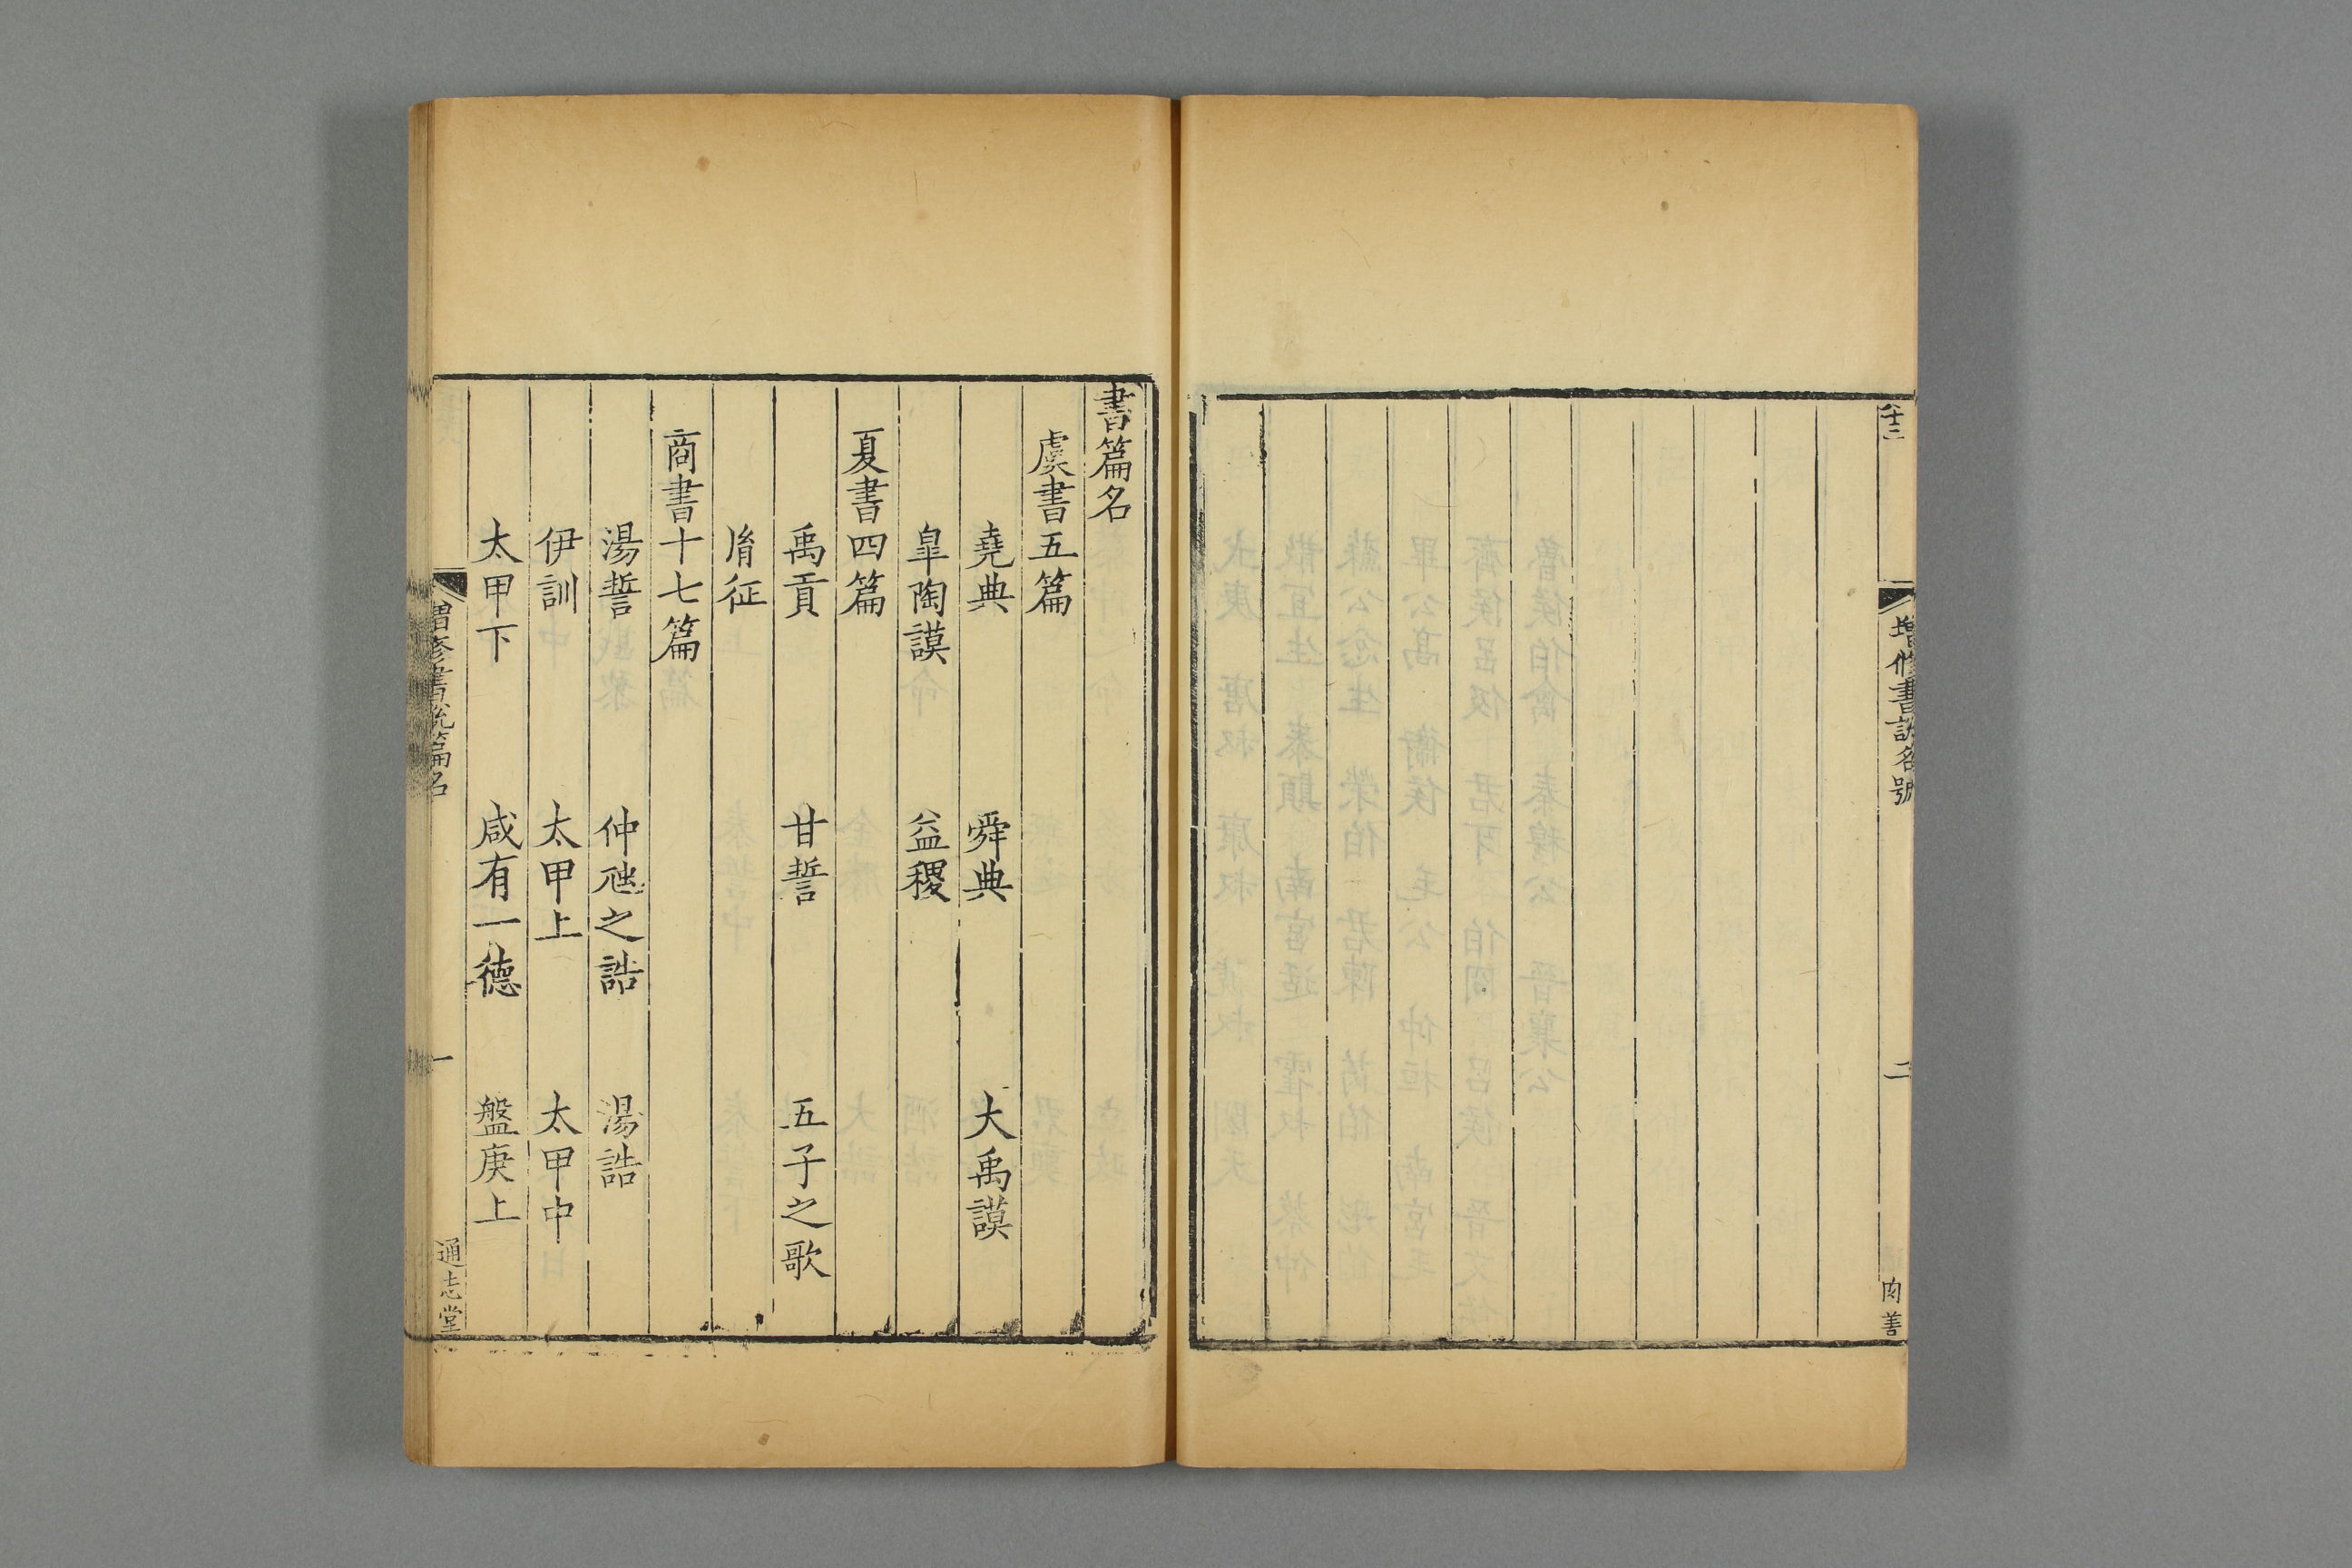 增修書說名號
二
肉善
書篇名
虞書五篇
堯典 舜典 大禹謨
皐陶謨 益稷
夏書四篇
禹貢 甘誓 五子之歌
胤征
商書十七篇
湯誓 仲虺之誥 湯誥
伊訓 太甲上 太甲中
太甲下 咸有一德 盤庚上
增修書說篇名
一
通志堂